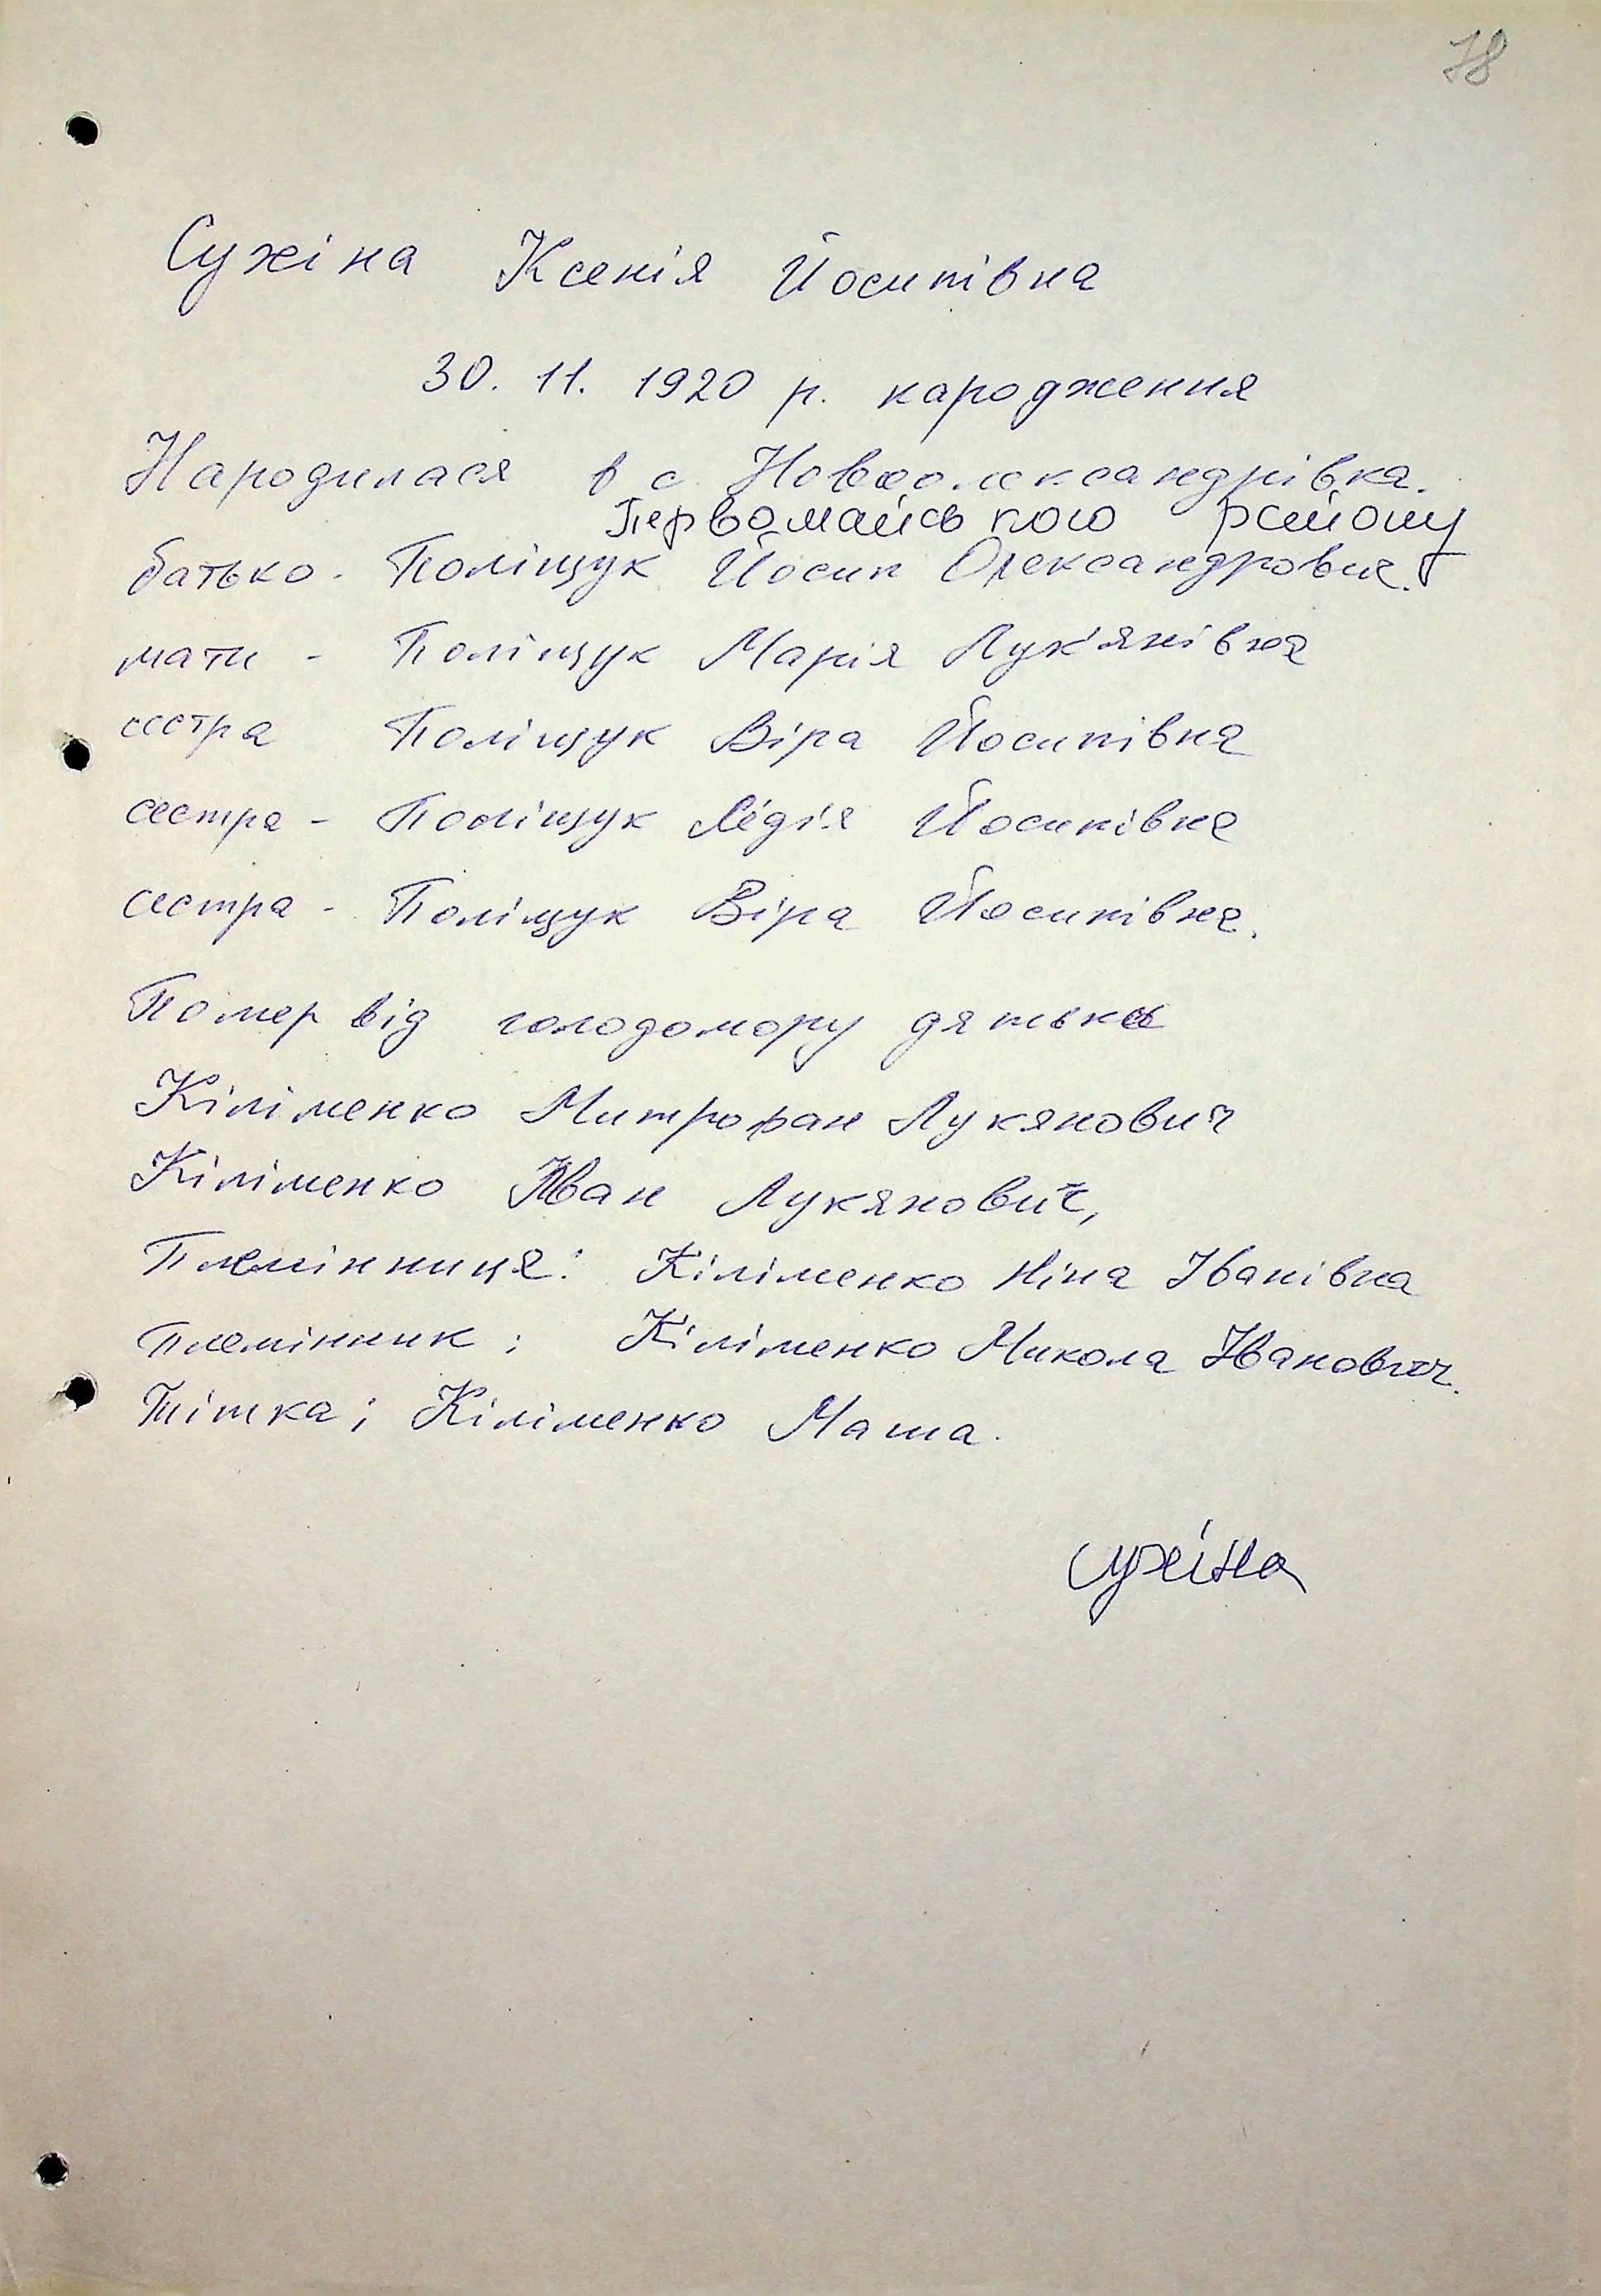 78
Сухіна Ксенія Йосипівна
30. 11. 1920 р. народження
Народилася в с. Новоолександрівка.
Первомайського району
батько - Поліщук Йосип Олександрович.
мати - Поліщук Марія Лук'янівна
сестра Поліщук Віра Йосипівна
сестра - Поліщук Лідія Йосипівна
сестра - Поліщук Віра Йосипівна.
Помер від голодомору дядько
Кіліменко Митрофан Лукянович
Кіліменко Іван Лукянович,
Племінниця: Кіліменко Ніна Іванівна
Племінник: Кіліменко Микола Іванович.
Тітка; Кіліменко Маша.
Сухіна